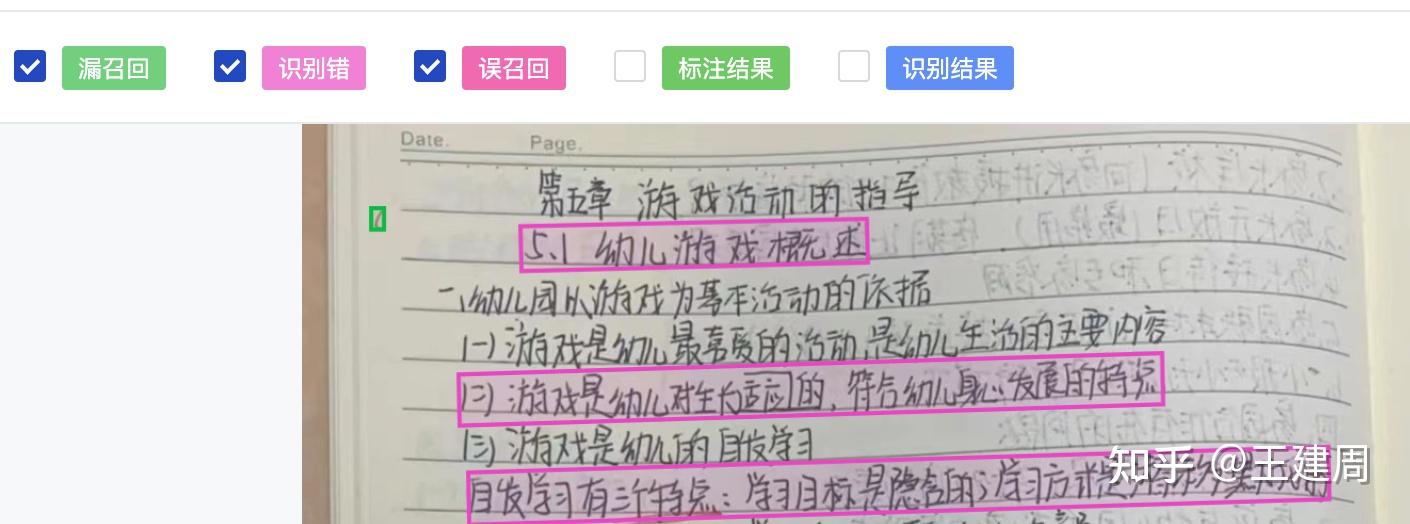 漏召回 识别错 误召回 标注结果 识别结果
Date. Page.
第五章 游戏活动的指导
5.1 幼儿游戏概述
一、幼儿园以游戏为基本活动的依据
(一)游戏是幼儿最喜爱的活动,是幼儿生活的主要内容
(二)游戏是幼儿对生活适应的,符合幼儿身心发展的特点
(三)游戏是幼儿的自发学习
自发学习有三个特点:学习目标是隐含的;学习方式是
知乎 @王建周